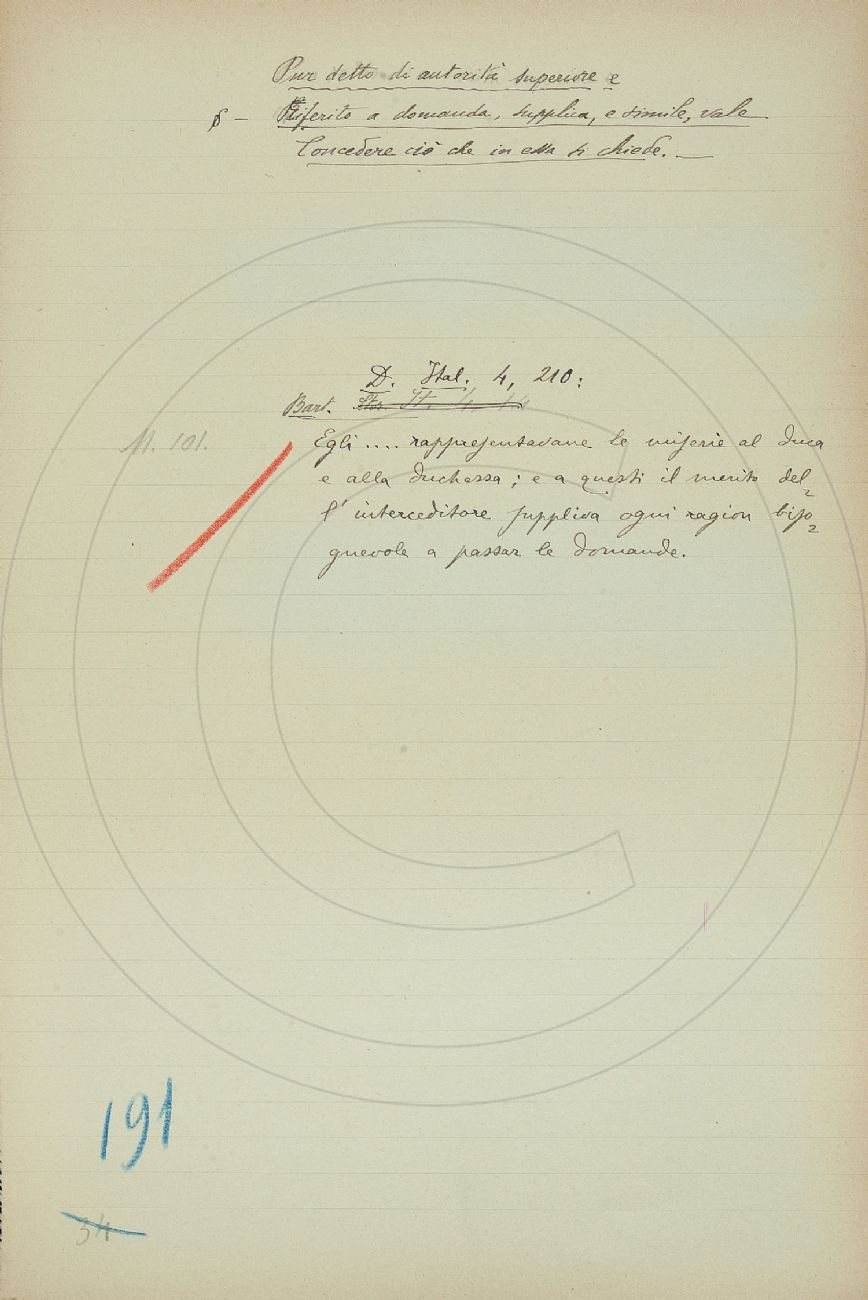 Pur detto di autorità superiore e
§ - Riferito a domanda, supplica, e simile, vale
Concedere ciò che in essa si chiede. -
D. Ital. 4, 210:
Bart. Stor. It.
M. 101.
Egli .... rappresentavane le miserie al duca
e alla duchessa; e a questi il merito del=
l'interceditore suppliva ogni ragion biso=
gnevole a passar le domande.
191
34